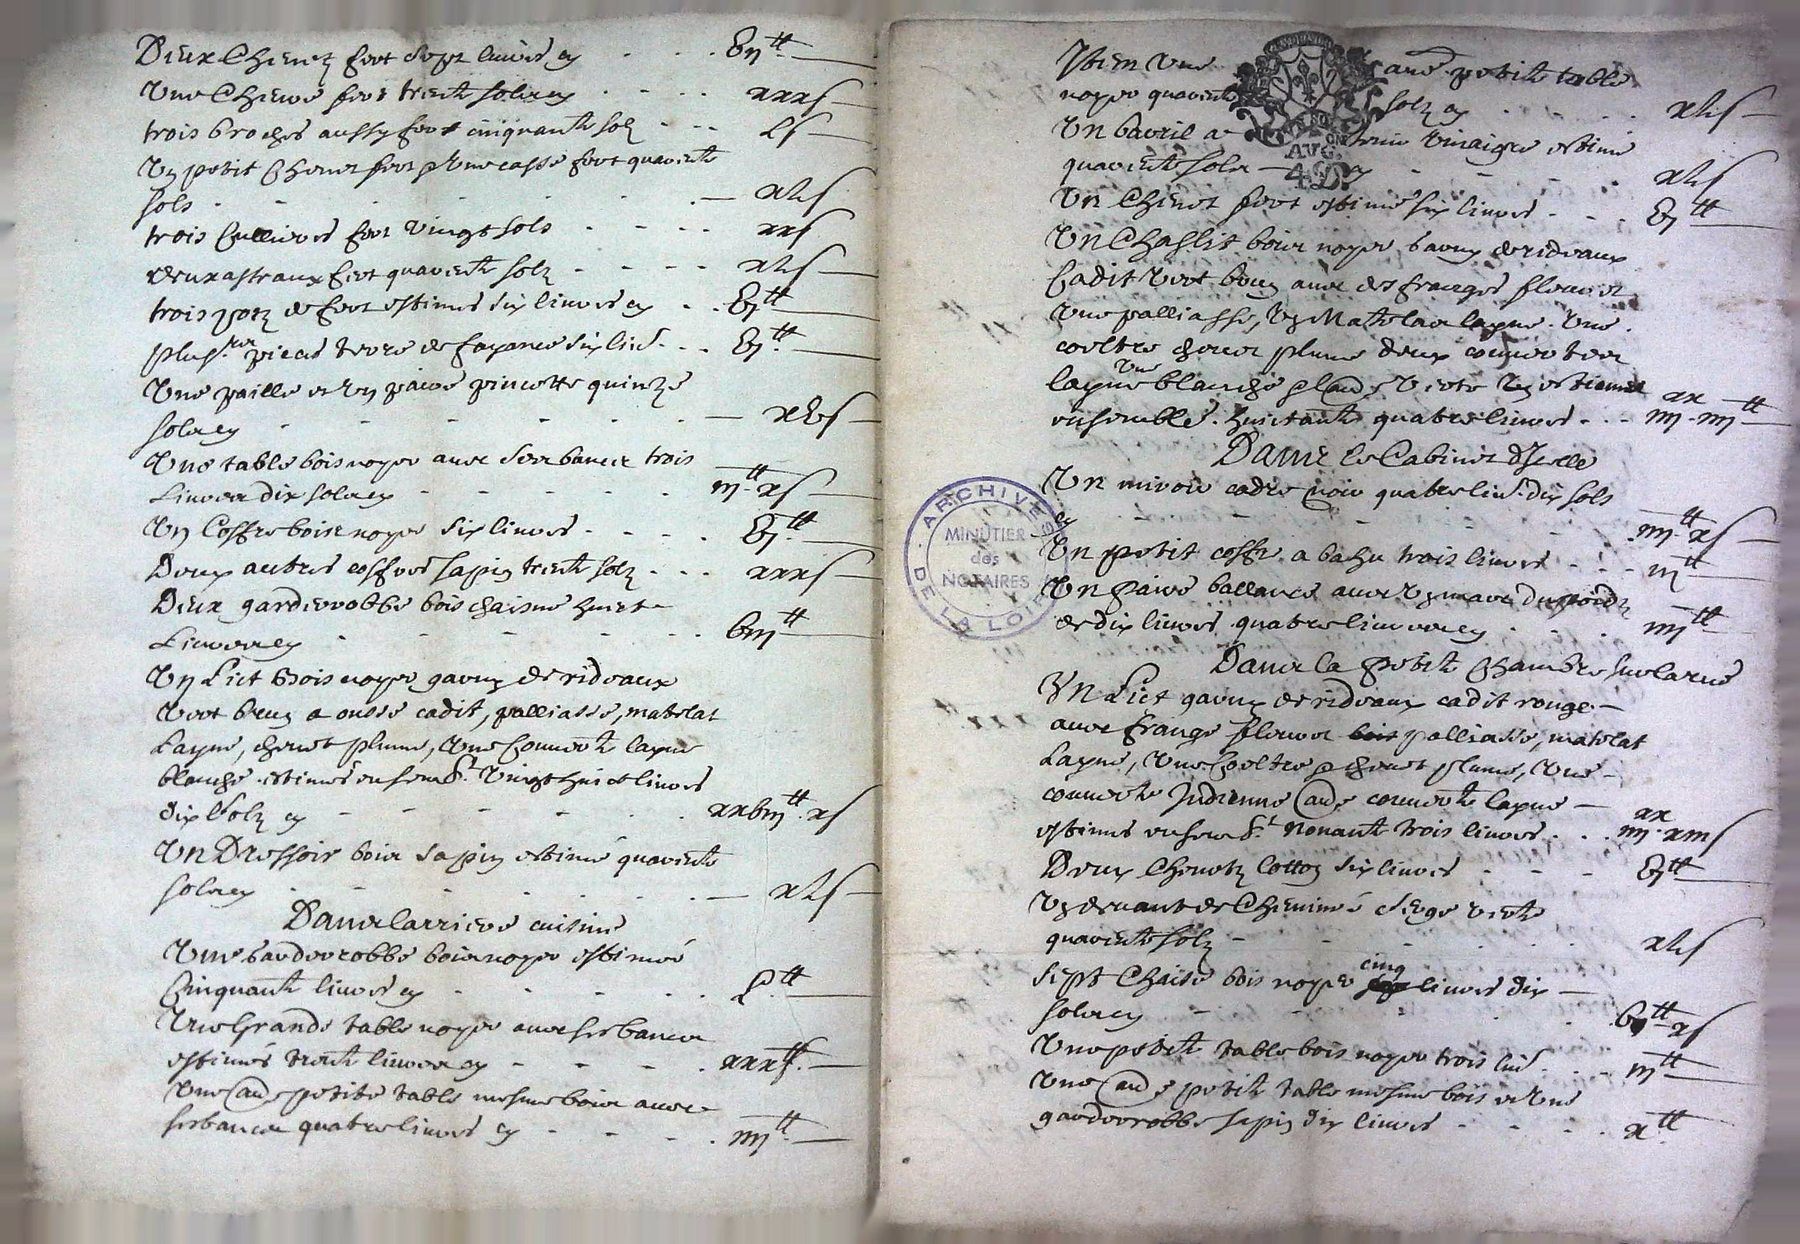 Deux Chenetz fert sept livres cy . . . . bij ₶
Une Chievre fert trente solz cy . . . . xxx s
trois broches aussy fert cinquante solz . . . L s
Un petit Chenet fert plume cassé fert quarente
sols . . . . xL s
trois Cullieres fert vingt sols . . . . xx s
deux astraux fert quarente solz . . . . xL s
trois potz de fert estimes six livres cy . bj ₶
plus.rs pieces terre de fayance six liv. . . bj ₶
Une paille et un paire pincette quinze
solz cy . . . . xb s
Une table bois noyer avec ses bancz trois
Livres dix solz cy . . . . iij ₶ x s
Un Coffre bois noyer six livres . . . . bj ₶
Deux autres coffres sapin trente solz . . . xxx s
Deux garderobbe bois chaisne huict
Livres cy . . . . biij ₶
Un Lict Bois noyer garny de rideaux
vert brun a ousse cadit, palliasse, matelat
Layne, chevet plume, Une Couverte layne
blanche estimés ensem.b. Vingt huict livres
dix Solz cy . . . . xxbiij ₶ x s
Un Dressoir bois sapin estimé quarente
solz cy . . . . xL s
Dans l'arriere cuisine
Une Garderobbe bois noyer estimée
Cinquante livres cy . . . . L ₶
Une Grande table noyer avec ses bancz
estimés trente livres cy . . . . xxx ₶
Une au.e petite table mesme bois avec
ses bancz quatre livres cy . . . . iiij ₶
Item Une au.e petite table
noyer quarente solz cy . . . . xL s
Un barril a tenir vinaigre estimé
quarente solz cy . . . . xL s
AVG.
4. D.
Un Chenet fert estimé six livres . . . bj ₶
Un Chaslit bois noyer garny de rideaux
Cadit vert brun avec des franges fleuret
Une palliasse, Un Matelat layne. Une
coeltre chevet plume deux couvertes
layne Une blanche et l'au.e verte estimé
ensemble huictante quatre livres . . . iiij xx iiij ₶
Dans le Cabinet d'Icelle
Un miroir cadre noir quatre liv. dix sols
cy . . . . iiij ₶ x s
Un petit coffre a bahu trois livres . . . iij ₶
Un paire ballance avec Un marc du poidz
de dix livres quatre livres cy . . . iiij ₶
Dans la petite Chambre sur la rue
Un Lict garny de rideaux cadit rouge
avec frange fleuret palliasse, matelat
Layne, Une Coeltre chevet plume, Une
couverte Indienne au.e couverte layne
estimés ensem.b. nonante trois livres . . . iiij xx xiij s
Deux Chenetz lotton six livres . . . bj ₶
Un devant de Cheminée serge verte
quarente solz . . . . xL s
Sept Chaise bois noyer cinq livres dix
solz cy . . . . b ₶ x s
Une petite table bois noyer trois liv. . . . iij ₶
Une au.e petite table mesme bois et Une
garderobbe sapin dix livres . . . . x ₶
ARCHIVES DE LA LOIRE
MINUTIER
des
NOTAIRES